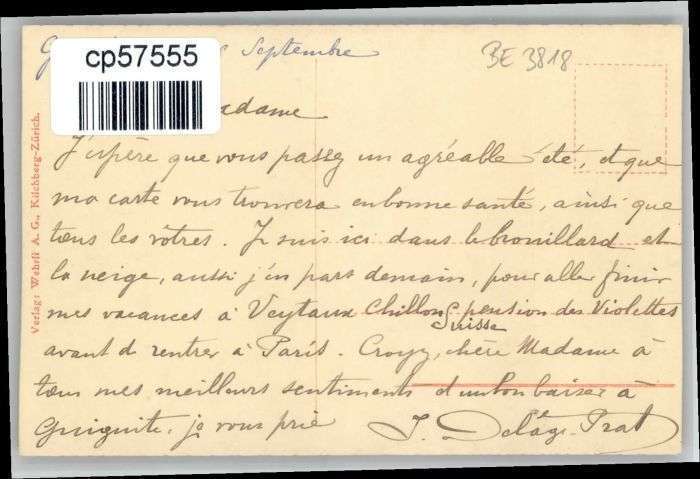 cp57555
Septembre
BE 3818
adame
J'espère que vous passez un agréable été, et que
ma carte vous trouvera en bonne santé, ainsi que
tous les vôtres. Je suis ici dans le brouillard et
la neige, aussi j'en pars demain, pour aller finir
mes vacances à Veytaux Chillon pension des Violettes
Suisse
avant de rentrer à Paris. Croyez, chère Madame à
tous mes meilleurs sentiments d'un bon baiser à
je vous prie J. Delage-Prat
Verlag: Wehrli A. G., Kilchberg-Zürich.